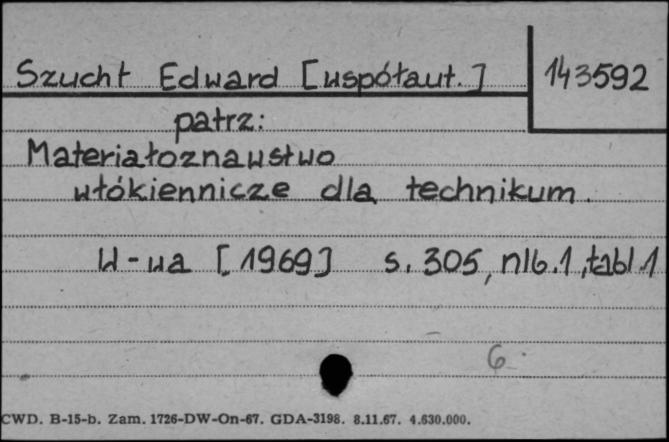 Szucht Edward [współaut.] 143592
patrz:
Materiałoznawstwo
włókiennicze dla technikum.
W-wa [1969] s. 305, nlb. 1, tabl 1
6
CWD. B-15-b. Zam. 1726-DW-On-67. GDA-3198. 8.11.67. 4.630.000.